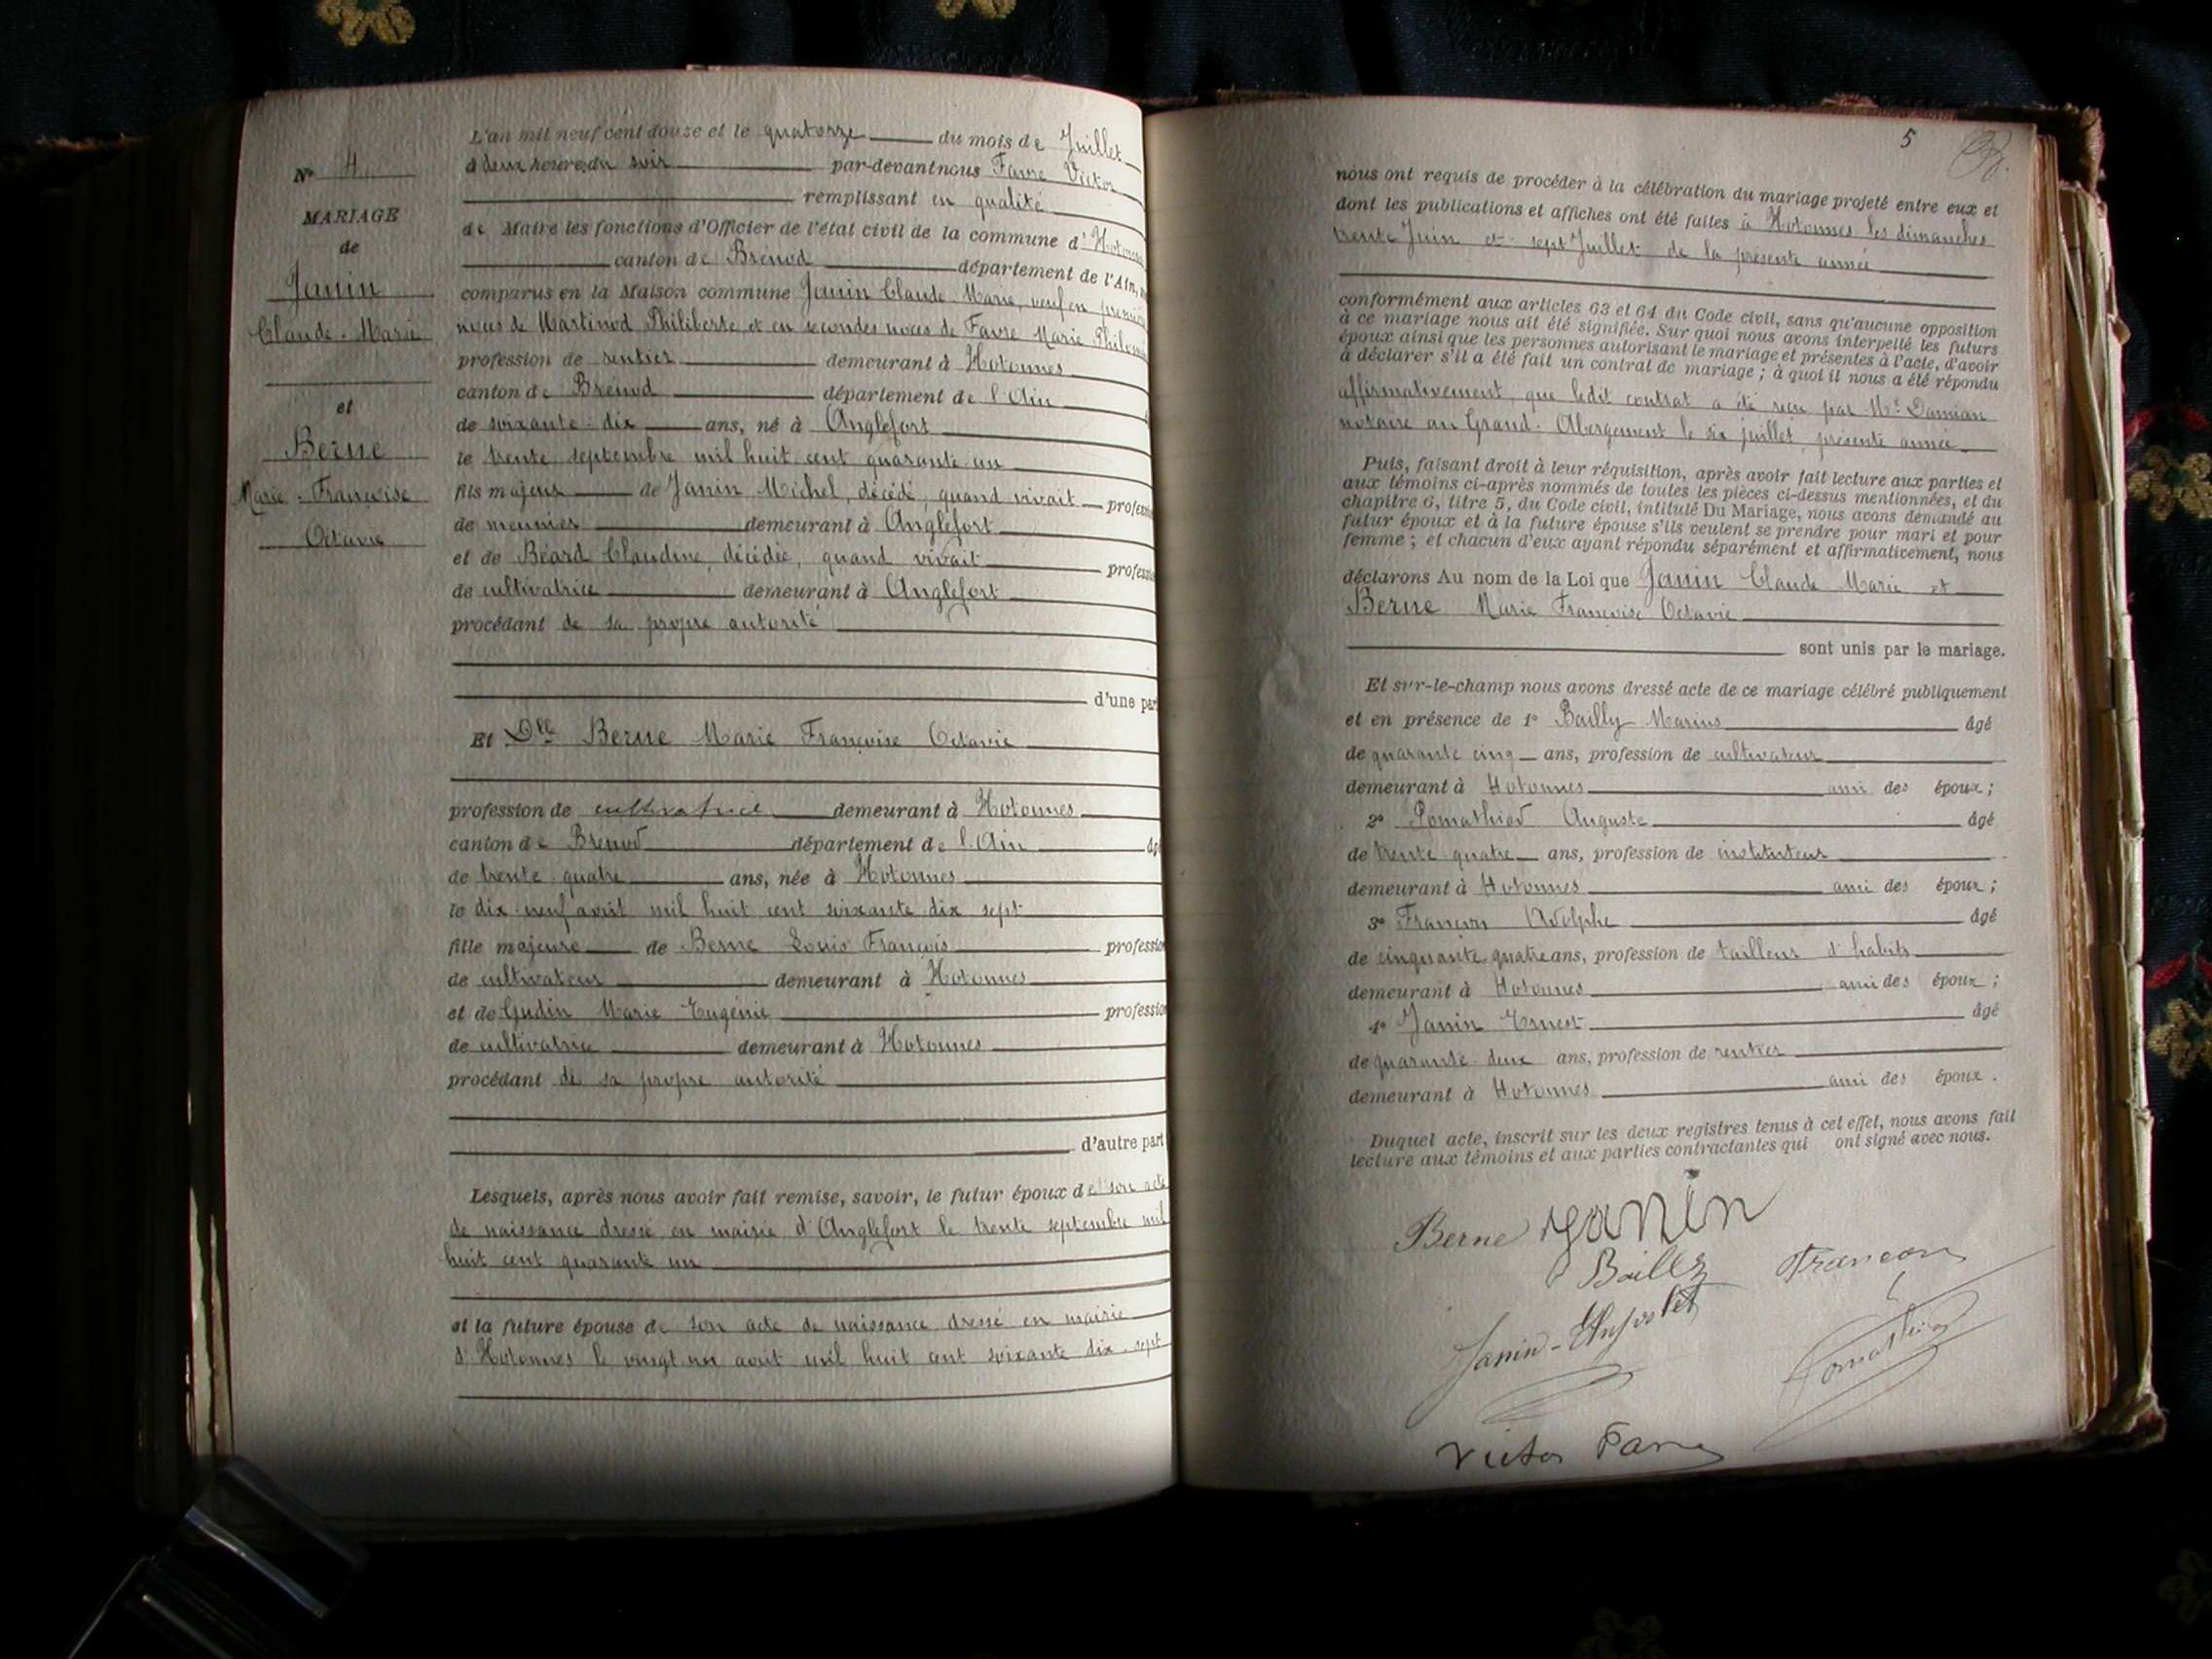 N° 4
MARIAGE
de
Janin
Claude-Marie
et
Berne
Marie-Françoise
Octavie
L'an mil neuf cent douze et le quatorze du mois de Juillet
à deux heures du soir par-devant nous Favre Victor
remplissant en qualité
de Maire les fonctions d'Officier de l'état civil de la commune d'Hotonnes
canton de Brénod département de l'Ain,
comparus en la Maison commune Janin Claude Marie, veuf en premières
noces de Martinod Philiberte et en secondes noces de Favre Marie Philomène
profession de rentier demeurant à Hotonnes
canton de Brénod département de l'Ain
de soixante-dix ans, né à Anglefort
le trente septembre mil huit cent quarante un
fils majeur de Janin Michel, décédé, quand vivait profession
de meunier demeurant à Anglefort
et de Béard Claudine, décédée, quand vivait profession
de cultivatrice demeurant à Anglefort
procédant de sa propre autorité
d'une part
Et Dlle Berne Marie Françoise Octavie
profession de cultivatrice demeurant à Hotonnes
canton de Brénod département de l'Ain âgé
de trente quatre ans, née à Hotonnes
le dix-neuf août mil huit cent soixante dix sept
fille majeure de Berne Louis François profession
de cultivateur demeurant à Hotonnes
et de Gudin Marie Eugénie profession
de cultivatrice demeurant à Hotonnes
procédant de sa propre autorité
d'autre part
Lesquels, après nous avoir fait remise, savoir, le futur époux de son acte
de naissance dressé en mairie d'Anglefort le trente septembre mil
huit cent quarante un
et la future épouse de son acte de naissance dressé en mairie
d'Hotonnes le vingt un août mil huit cent soixante dix-sept
5
nous ont requis de procéder à la célébration du mariage projeté entre eux et
dont les publications et affiches ont été faites à Hotonnes les dimanches
trente Juin et sept Juillet de la présente année
conformément aux articles 63 et 64 du Code civil, sans qu'aucune opposition
à ce mariage nous ait été signifiée. Sur quoi nous avons interpellé les futurs
époux ainsi que les personnes autorisant le mariage et présentes à l'acte, d'avoir
à déclarer s'il a été fait un contrat de mariage ; à quoi il nous a été répondu
affirmativement, que ledit contrat a été reçu par Me Damian
notaire au Grand-Abergement le six juillet, présente année
Puis, faisant droit à leur réquisition, après avoir fait lecture aux parties et
aux témoins ci-après nommés de toutes les pièces ci-dessus mentionnées, et du
chapitre 6, titre 5, du Code civil, intitulé Du Mariage, nous avons demandé au
futur époux et à la future épouse s'ils veulent se prendre pour mari et pour
femme ; et chacun d'eux ayant répondu séparément et affirmativement, nous
déclarons Au nom de la Loi que Janin Claude Marie et
Berne Marie Françoise Octavie
sont unis par le mariage.
Et sur-le-champ nous avons dressé acte de ce mariage célébré publiquement
et en présence de 1° Bailly Marius âgé
de quarante cinq ans, profession de cultivateur
demeurant à Hotonnes ami des époux ;
2° Pomathiod Auguste âgé
de trente-quatre ans, profession de instituteur
demeurant à Hotonnes ami des époux ;
3° Françon Adolphe âgé
de cinquante-quatre ans, profession de tailleur d'habits
demeurant à Hotonnes ami des époux ;
4° Janin Ernest âgé
de quarante-deux ans, profession de rentier
demeurant à Hotonnes ami des époux.
Duquel acte, inscrit sur les deux registres tenus à cet effet, nous avons fait
lecture aux témoins et aux parties contractantes qui ont signé avec nous.
Berne Janin
Bailly Francon
Janin-
Pomathiod
Victor Favre